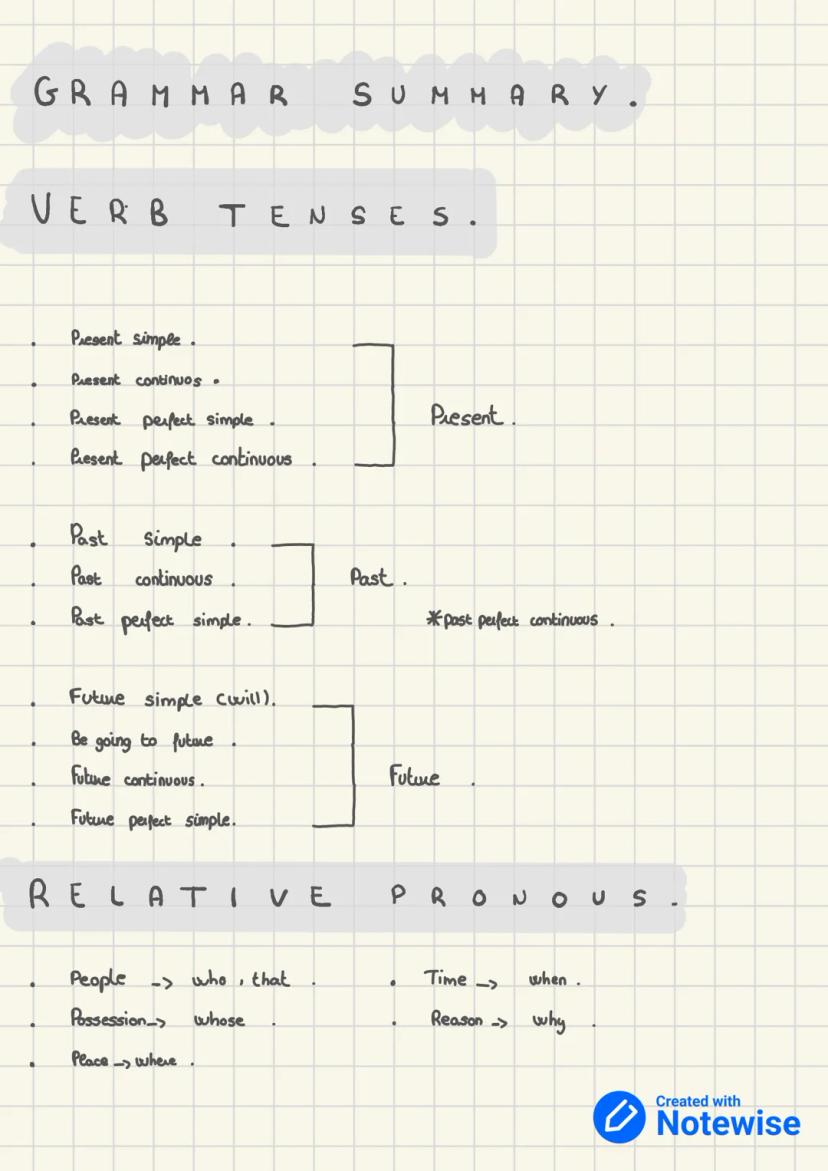 GRAMMAR SUMMARY.
VERB TENSES.
. Present simple .
. Present continuos .
. Present perfect simple .
. Present perfect continuous .
Present .
. Past simple .
. Past continuous .
. Past perfect simple .
Past .
*past perfect continuous .
. Future simple (will).
. Be going to future .
. Future continuous .
. Future perfect simple.
Future .
RELATIVE PRONOUS.
. People -> who , that .
. Possession -> whose .
. Place -> where .
. Time -> when .
. Reason -> why .
Created with
Notewise